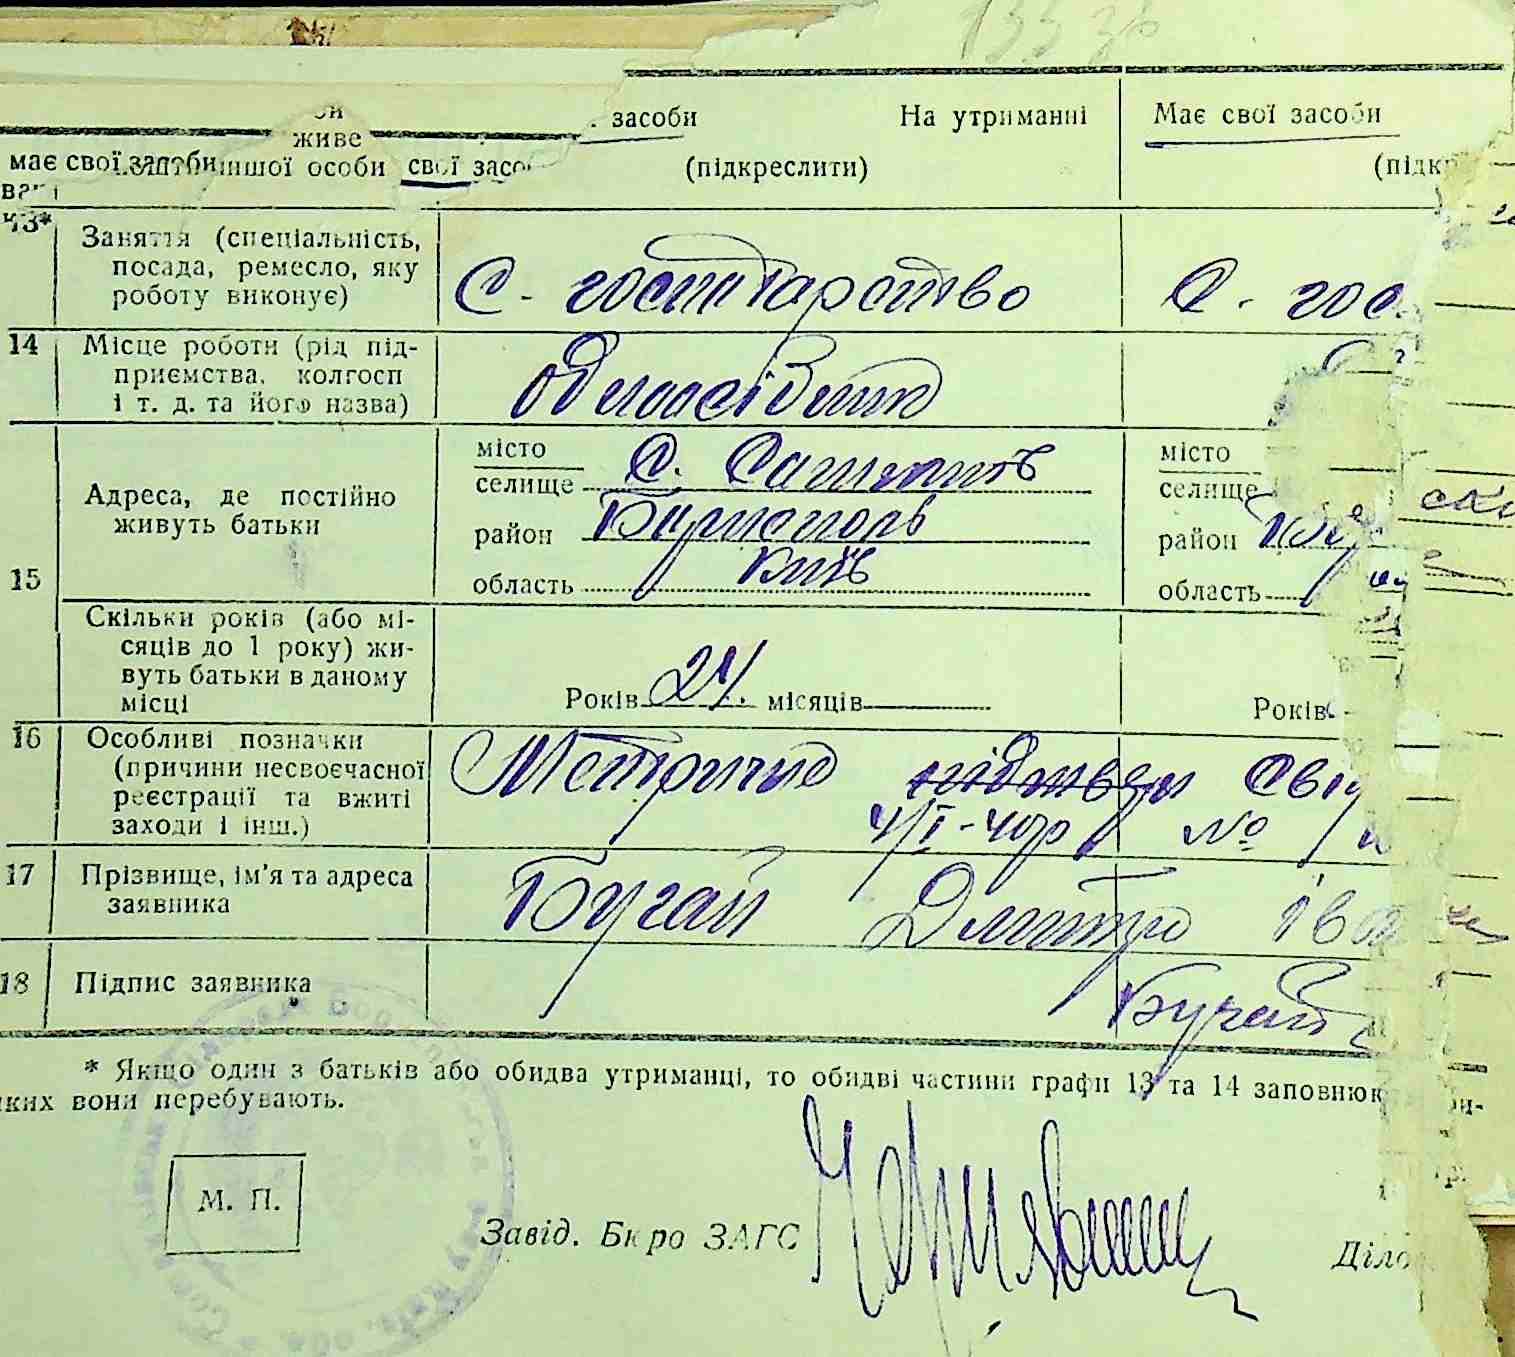 133 зв
засоби На утриманні Має свої засоби
живе
має свої засоби іншої особи свої засо (підкреслити) (підк
13* Заняття (спеціальність, посада, ремесло, яку роботу виконує) С. госптарство С. гос
14 Місце роботи (рід підприємства, колгосп і т. д. та його назва)
15 Адреса, де постійно живуть батьки
місто селище С. місто селище
район Бориспольк район
область Київ область
Скільки років (або місяців до 1 року) живуть батьки в даному місці Років 24. місяців Років
16 Особливі позначки (причини несвоєчасної реєстрації та вжиті заходи і інш.) Метричне підтверд Сві
4/I-40р № 1
17 Прізвище, ім'я та адреса заявника Бугай Дмитро Іва
18 Підпис заявника Бугай
* Якщо один з батьків або обидва утриманці, то обидві частини графи 13 та 14 заповнюю
яких вони перебувають.
М. П.
Завід. Бюро ЗАГС Діло